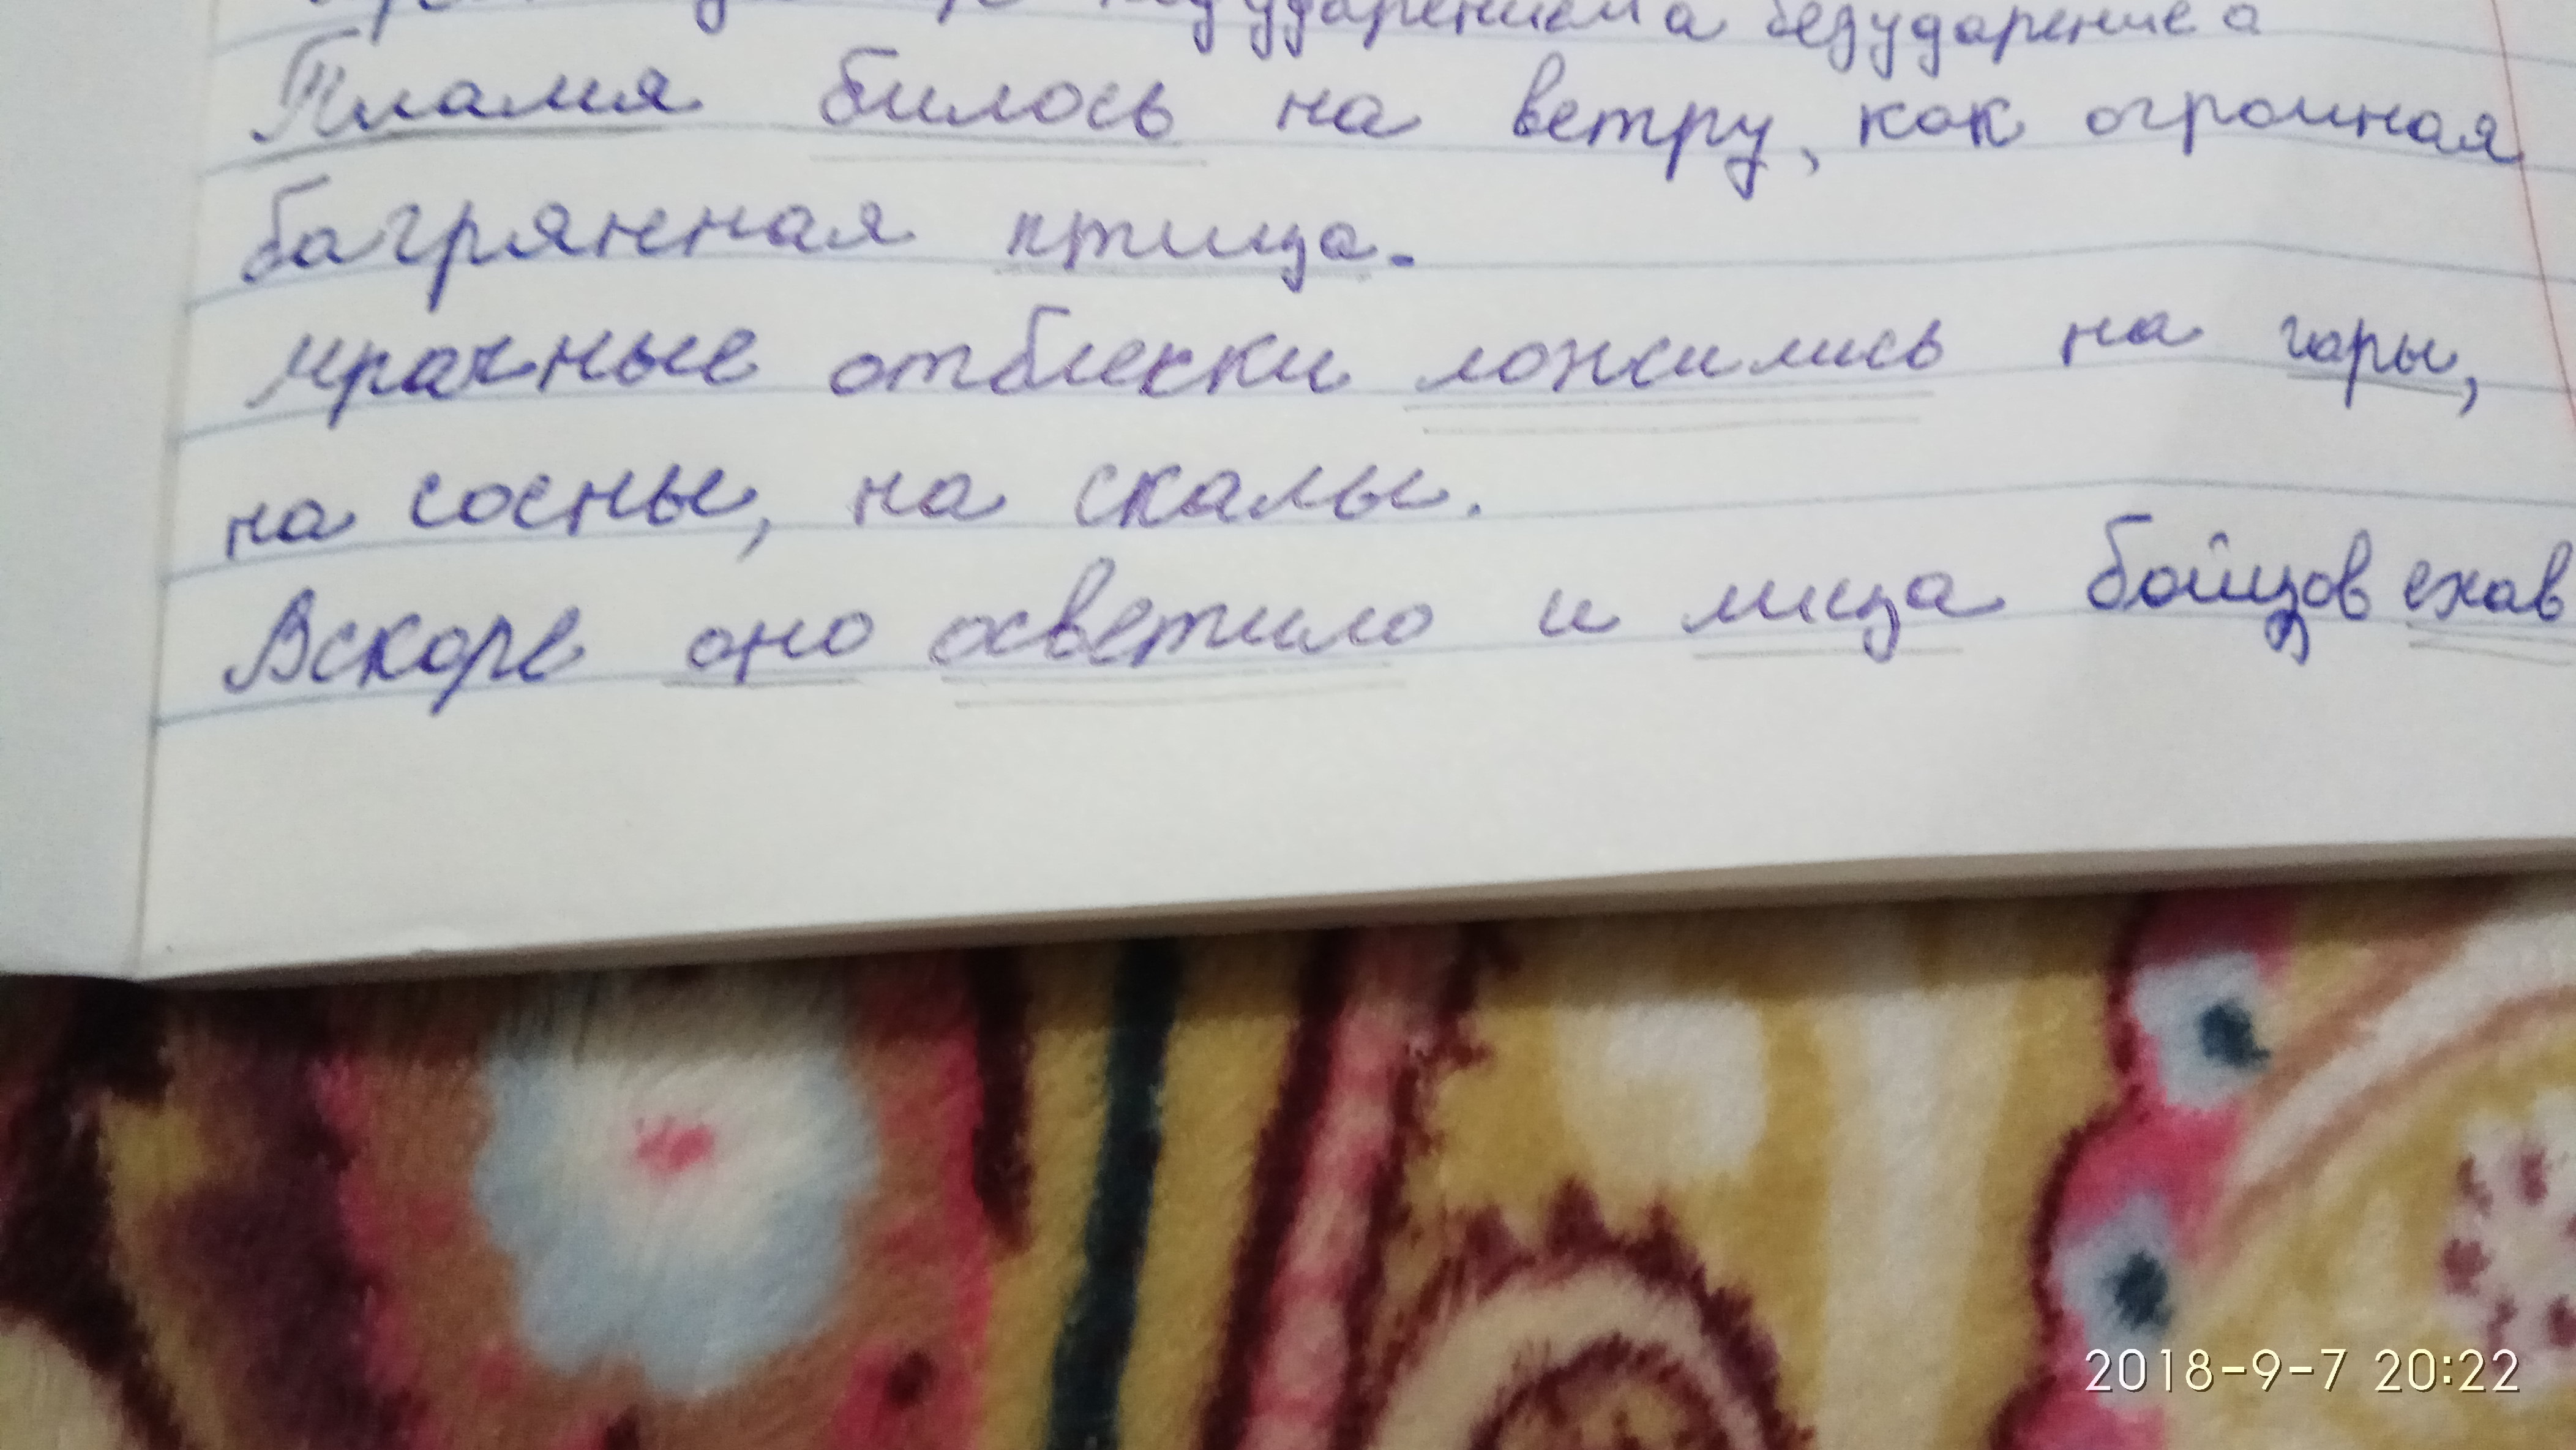 под ударением а безударение а
Пламя билось на ветру, как огромная
багрянная птица.
Мрачные отблески ложились на горы,
на сосны, на скалы.
Вскоре оно осветило и лица бойцов ехав
2018-9-7 20:22